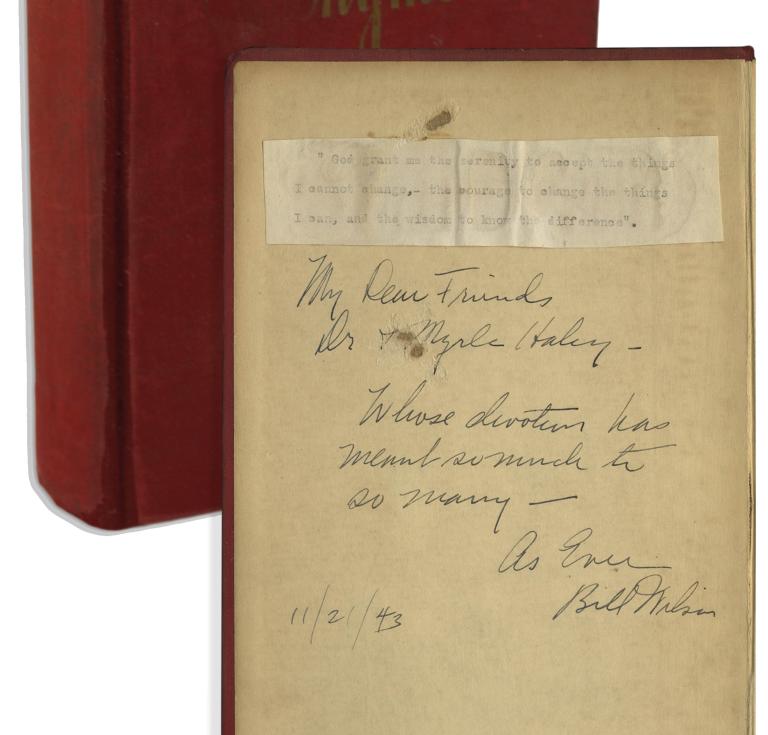 " God grant me the serenity to accept the things
I cannot change,- the courage to change the things
I can, and the wisdom to know the difference".
My Dear Friends
Dr + Myrle Haley –
Whose devotion has
meant so much to
so many –
As Ever
Bill Wilson
11/21/43